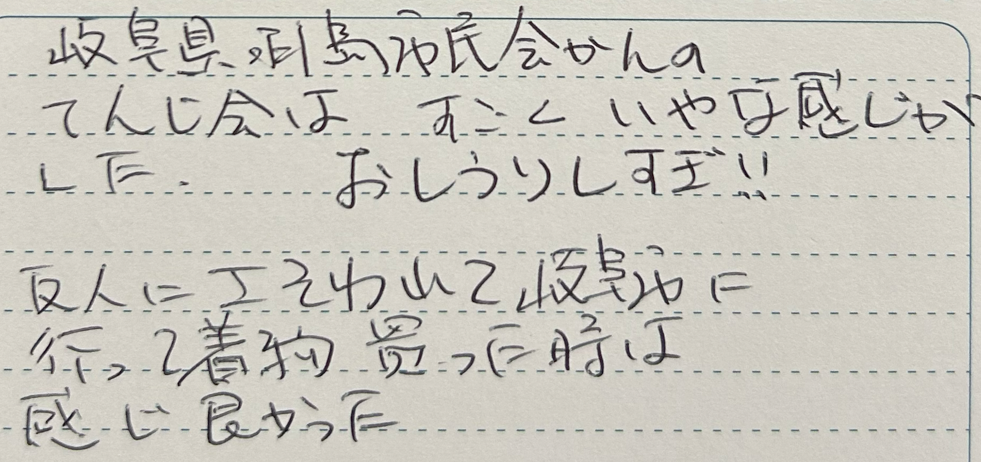 岐阜県.羽島市民会かんの
てんじ会は すごく いやな感じが
した. おしうりしすぎ!!
友人にさそわれて岐阜市に
行って着物買った時は
感じ良かった